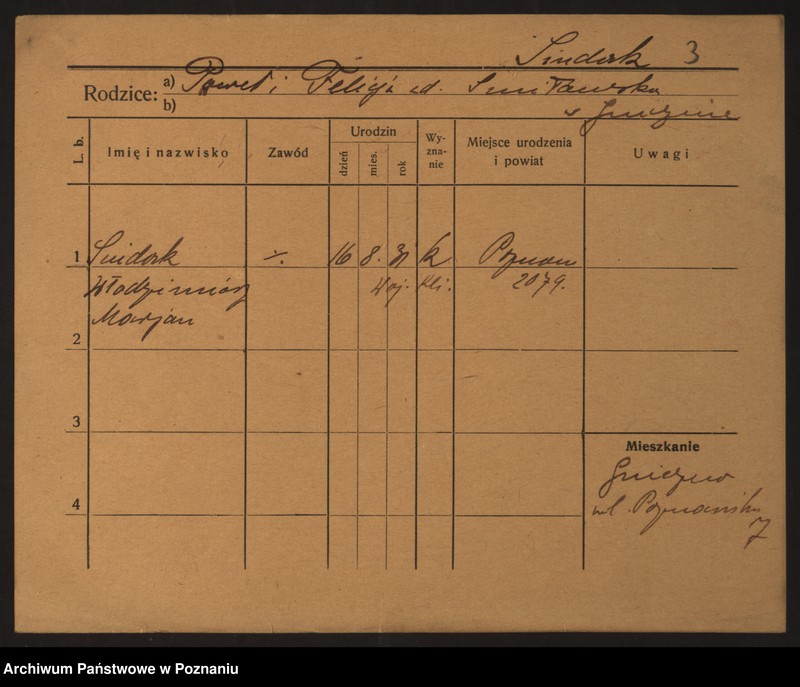 Sindak 3
Rodzice: a) Paweł i Felicja ud. Smiławska
b) w Gnieźnie
L. b. Imię i nazwisko Zawód Urodzin dzień mies. rok Wy-zna-nie Miejsce urodzenia i powiat Uwagi
1 Sindak ·/. 16 8. 31 k Poznań
Włodzimierz Woj. kli. 2079.
Marjan
2
3
Mieszkanie
4 Gniezno
ul. Poznańska
7
Archiwum Państwowe w Poznaniu